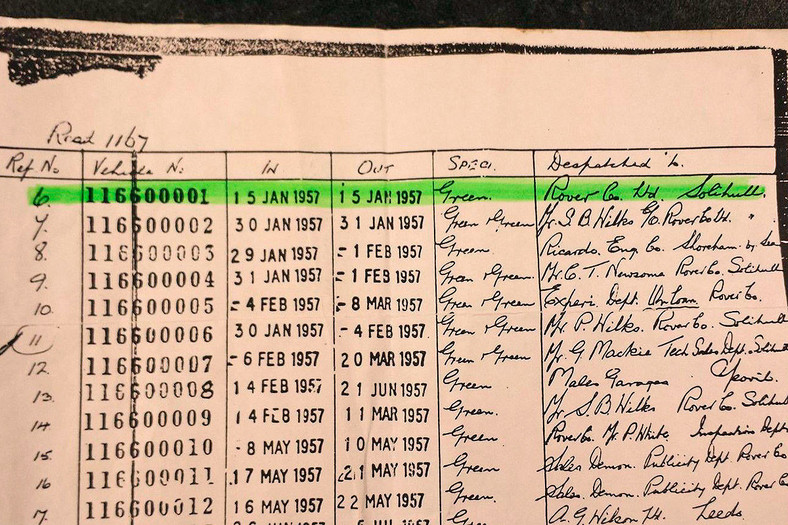 Read 1167
Ref No. Vehicle No. IN OUT SPEC. Despatched to.
6. 116600001 15 JAN 1957 15 JAN 1957 Green. Rover Co. Ltd. Solihull.
7. 116600002 30 JAN 1957 31 JAN 1957 Green & Green Mr. S. B. Wilks C/o. Rover Co Ltd. "
8. 116600003 29 JAN 1957 -1 FEB 1957 Green. Ricardo. Eng. Co. Shoreham by Sea
9. 116600004 31 JAN 1957 -1 FEB 1957 Green & Green Mr. C. T. Newsome Rover Co. Solihull
10. 116600005 -4 FEB 1957 -8 MAR 1957 Green & Green Experi. Dept. Rover Co.
11 116600006 30 JAN 1957 -4 FEB 1957 Green & Green Mr. P. Wilks. Rover Co. Solihull
12. 116600007 -6 FEB 1957 20 MAR 1957 Green & Green Mr. G Mackie Tech Sales Dept. Solihull
13. 116600008 14 FEB 1957 21 JUN 1957 Green Males Garages
14. 116600009 14 FEB 1957 11 MAR 1957 Green. Mr. S. B Wilks Rover Co. Solihull
15. 116600010 -8 MAY 1957 10 MAY 1957 Green Rover Co. Mr. P. White, Inspection Dept
16 116600011 17 MAY 1957 21 MAY 1957 Green Sales Demon. Publicity Dept. Rover Co
7. 116600012 16 MAY 1957 22 MAY 1957 Green. Sales. Demon. Publicity Dept. Rover Co
JUL 1957 Green A. G. Wilson Ltd. Leeds.